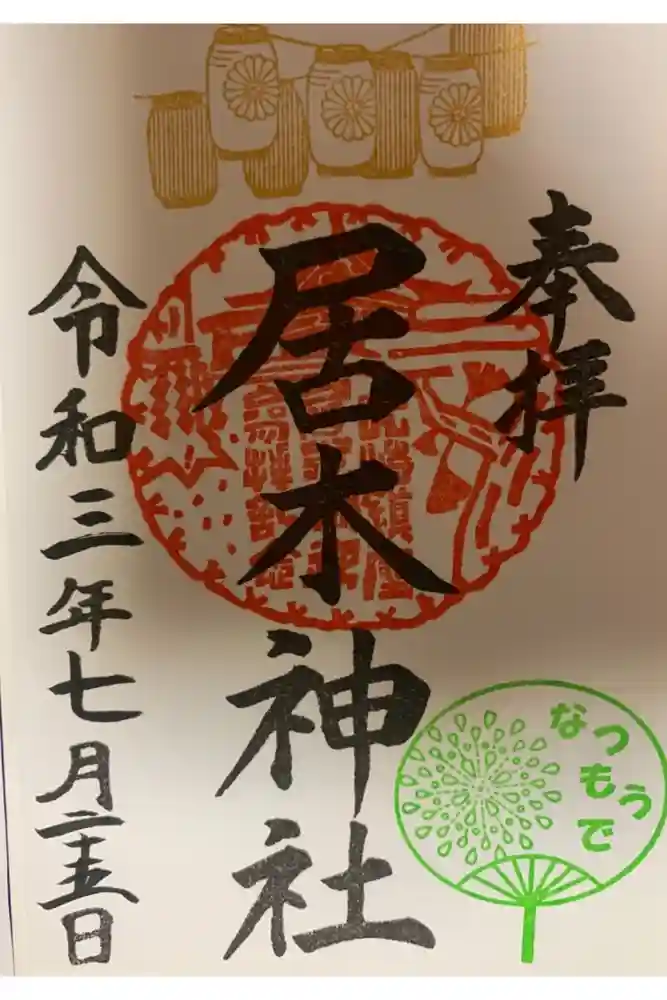 奉拝
居木神社
令和三年七月二十五日
なつもうで